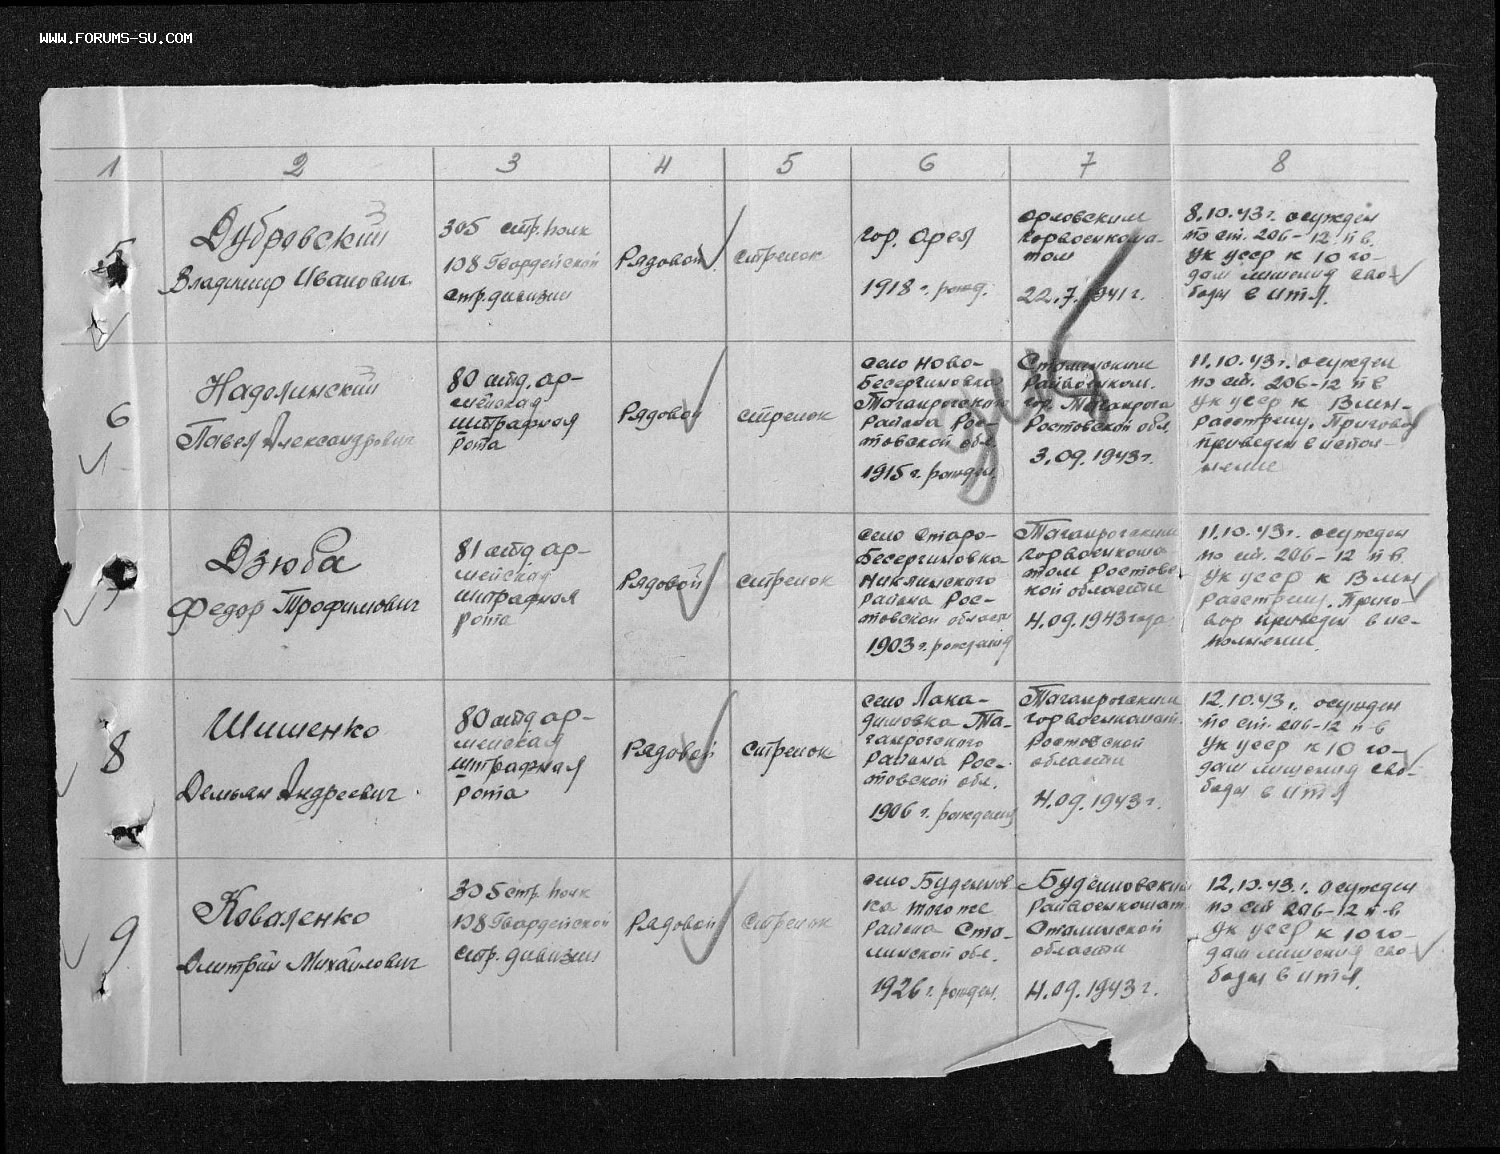 WWW.FORUMS-SU.COM
1 2 3 4 5 6 7 8
5
Дубровский
Владимир Иванович
305 стр. полк
108 Гвардейской
стр. дивизии
Рядовой
стрелок
гор. Орел
1918 г. рожд.
Орловским
горвоенкома-
том
22.7.1941 г.
8.10.43 г. осужден
по ст. 206-12 п в.
УК УССР к 10 го-
дам лишения сво-
боды в ИТЛ.
6
Надолинский
Павел Александрович
80 отд. ар-
мейская
штрафная
рота
Рядовой
стрелок
село Ново-
Бесергиновка
Таганрогского
района Рос-
товской обл.
1915 г. рожден.
Сталинским
Райвоенком.
гор. Таганрога
Ростовской обл.
3.09.1943 г.
11.10.43 г. осужден
по ст. 206-12 п в
УК УССР к В МН-
расстрелу. Приговор
приведен в испол-
нение
7
Дзюба
Федор Трофимович
81 отд ар-
мейская
штрафная
рота
Рядовой
стрелок
село Старо-
Бесергиновка
Никлинского
района Рос-
товской области
1903 г. рождения
Таганрогским
горвоенкома
том Ростовс
кой области
4.09.1943 года
11.10.43 г. осужден
по ст. 206-12 п в.
УК УССР к В МН
расстрелу. Приго-
вор приведен в ис-
полнении.
8
Шишенко
Демьян Андреевич
80 отд ар-
мейская
штрафная
рота
Рядовой
стрелок
село Лака-
димовка Та-
ганрогского
района Рос-
товской обл.
1906 г. рождения
Таганрогским
горвоенкомат.
Ростовской
области
4.09.1943 г.
12.10.43 г. осужден
по ст. 206-12 п-в
УК УССР к 10 го-
дам лишения сво-
боды в ИТЛ
9
Коваленко
Дмитрий Михайлович
305 стр. полк
108 Гвардейской
стр. дивизии
Рядовой
стрелок
село Буденнов
ка того же
района Ста-
линской обл.
1926 г. рожден.
Буденновский
райвоенкомат
Сталинской
области
4.09.1943 г.
12.10.43 г. осужден
по ст 206-12 п-в
УК УССР к 10 го-
дам лишения сво-
боды в ИТЛ.